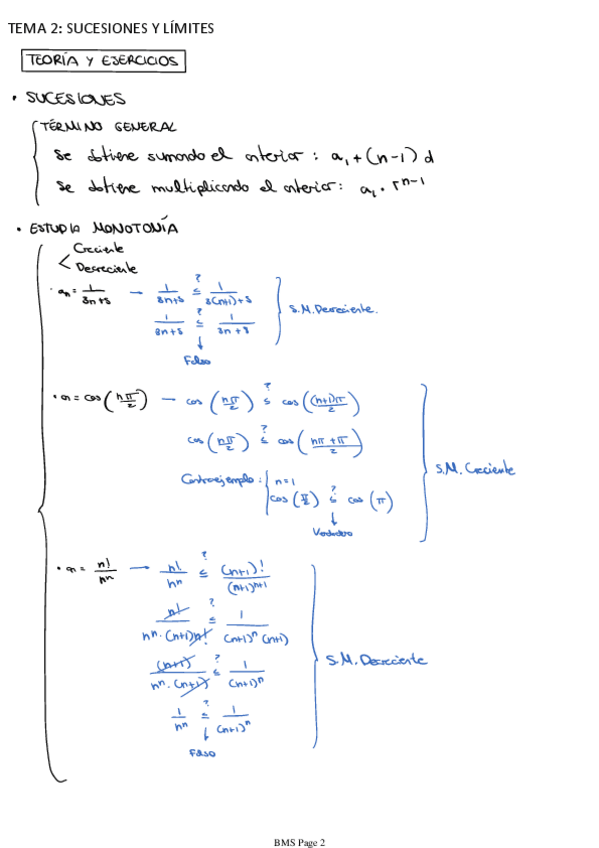 TEMA 2: SUCESIONES Y LÍMITES
TEORÍA Y EJERCICIOS
• SUCESIONES
TÉRMINO GENERAL
Se obtiene sumando el anterior : a₁ + (n-1) d
Se obtiene multiplicando el anterior: a₁ · rⁿ⁻¹
• ESTUDIO MONOTONÍA
Creciente
Decreciente
· aₙ = 1/(3n+5) → 1/(3n+5) ≤? 1/(3(n+1)+5)
1/(3n+5) ≤? 1/(3n+8)
↓
Falso
S.M. Decreciente.
· a = cos (nπ/2) → cos (nπ/2) ≤? cos ((n+1)π/2)
cos (nπ/2) ≤? cos (nπ+π/2)
Contraejemplo : n=1
cos (π/2) ≤? cos (π)
↓
Verdadero
S.M. Creciente
· a = n!/nⁿ → n!/nⁿ ≤? (n+1)!/(n+1)ⁿ⁺¹
n!/(nⁿ·(n+1)n!) ≤? 1/((n+1)ⁿ(n+1))
(n+1)/(nⁿ·(n+1)) ≤? 1/(n+1)ⁿ
1/nⁿ ≤? 1/(n+1)ⁿ
↓
Falso
S.M. Decreciente
BMS Page 2